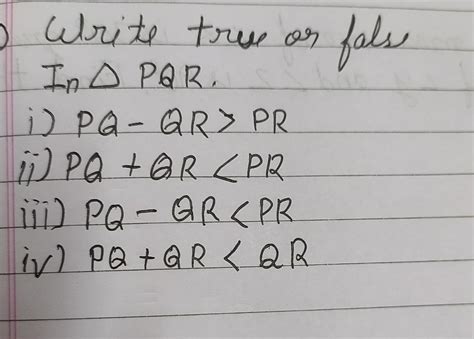 Write true or fals
In △ PQR.
i) PQ - QR > PR
ii) PQ + QR < PR
iii) PQ - QR < PR
iv) PQ + QR < QR